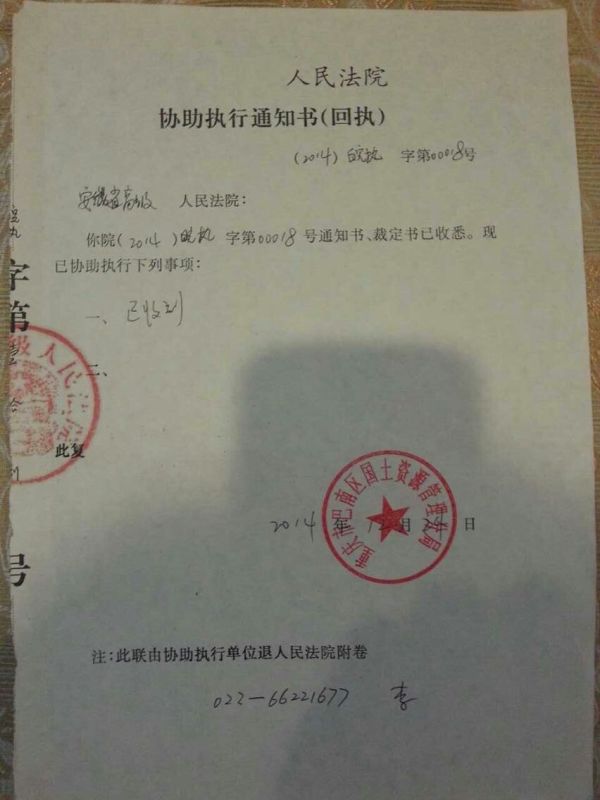 人民法院
协助执行通知书(回执)
(2014)皖执 字第00018号
安徽省高级 人民法院:
你院(2014)皖执 字第00018号通知书、裁定书已收悉。现
已协助执行下列事项:
一、已收到
二、
此复
2014年 月 日
重庆市巴南区国土资源管理分局
级人民法院
字第
号
注:此联由协助执行单位退人民法院附卷
023-66221677 李